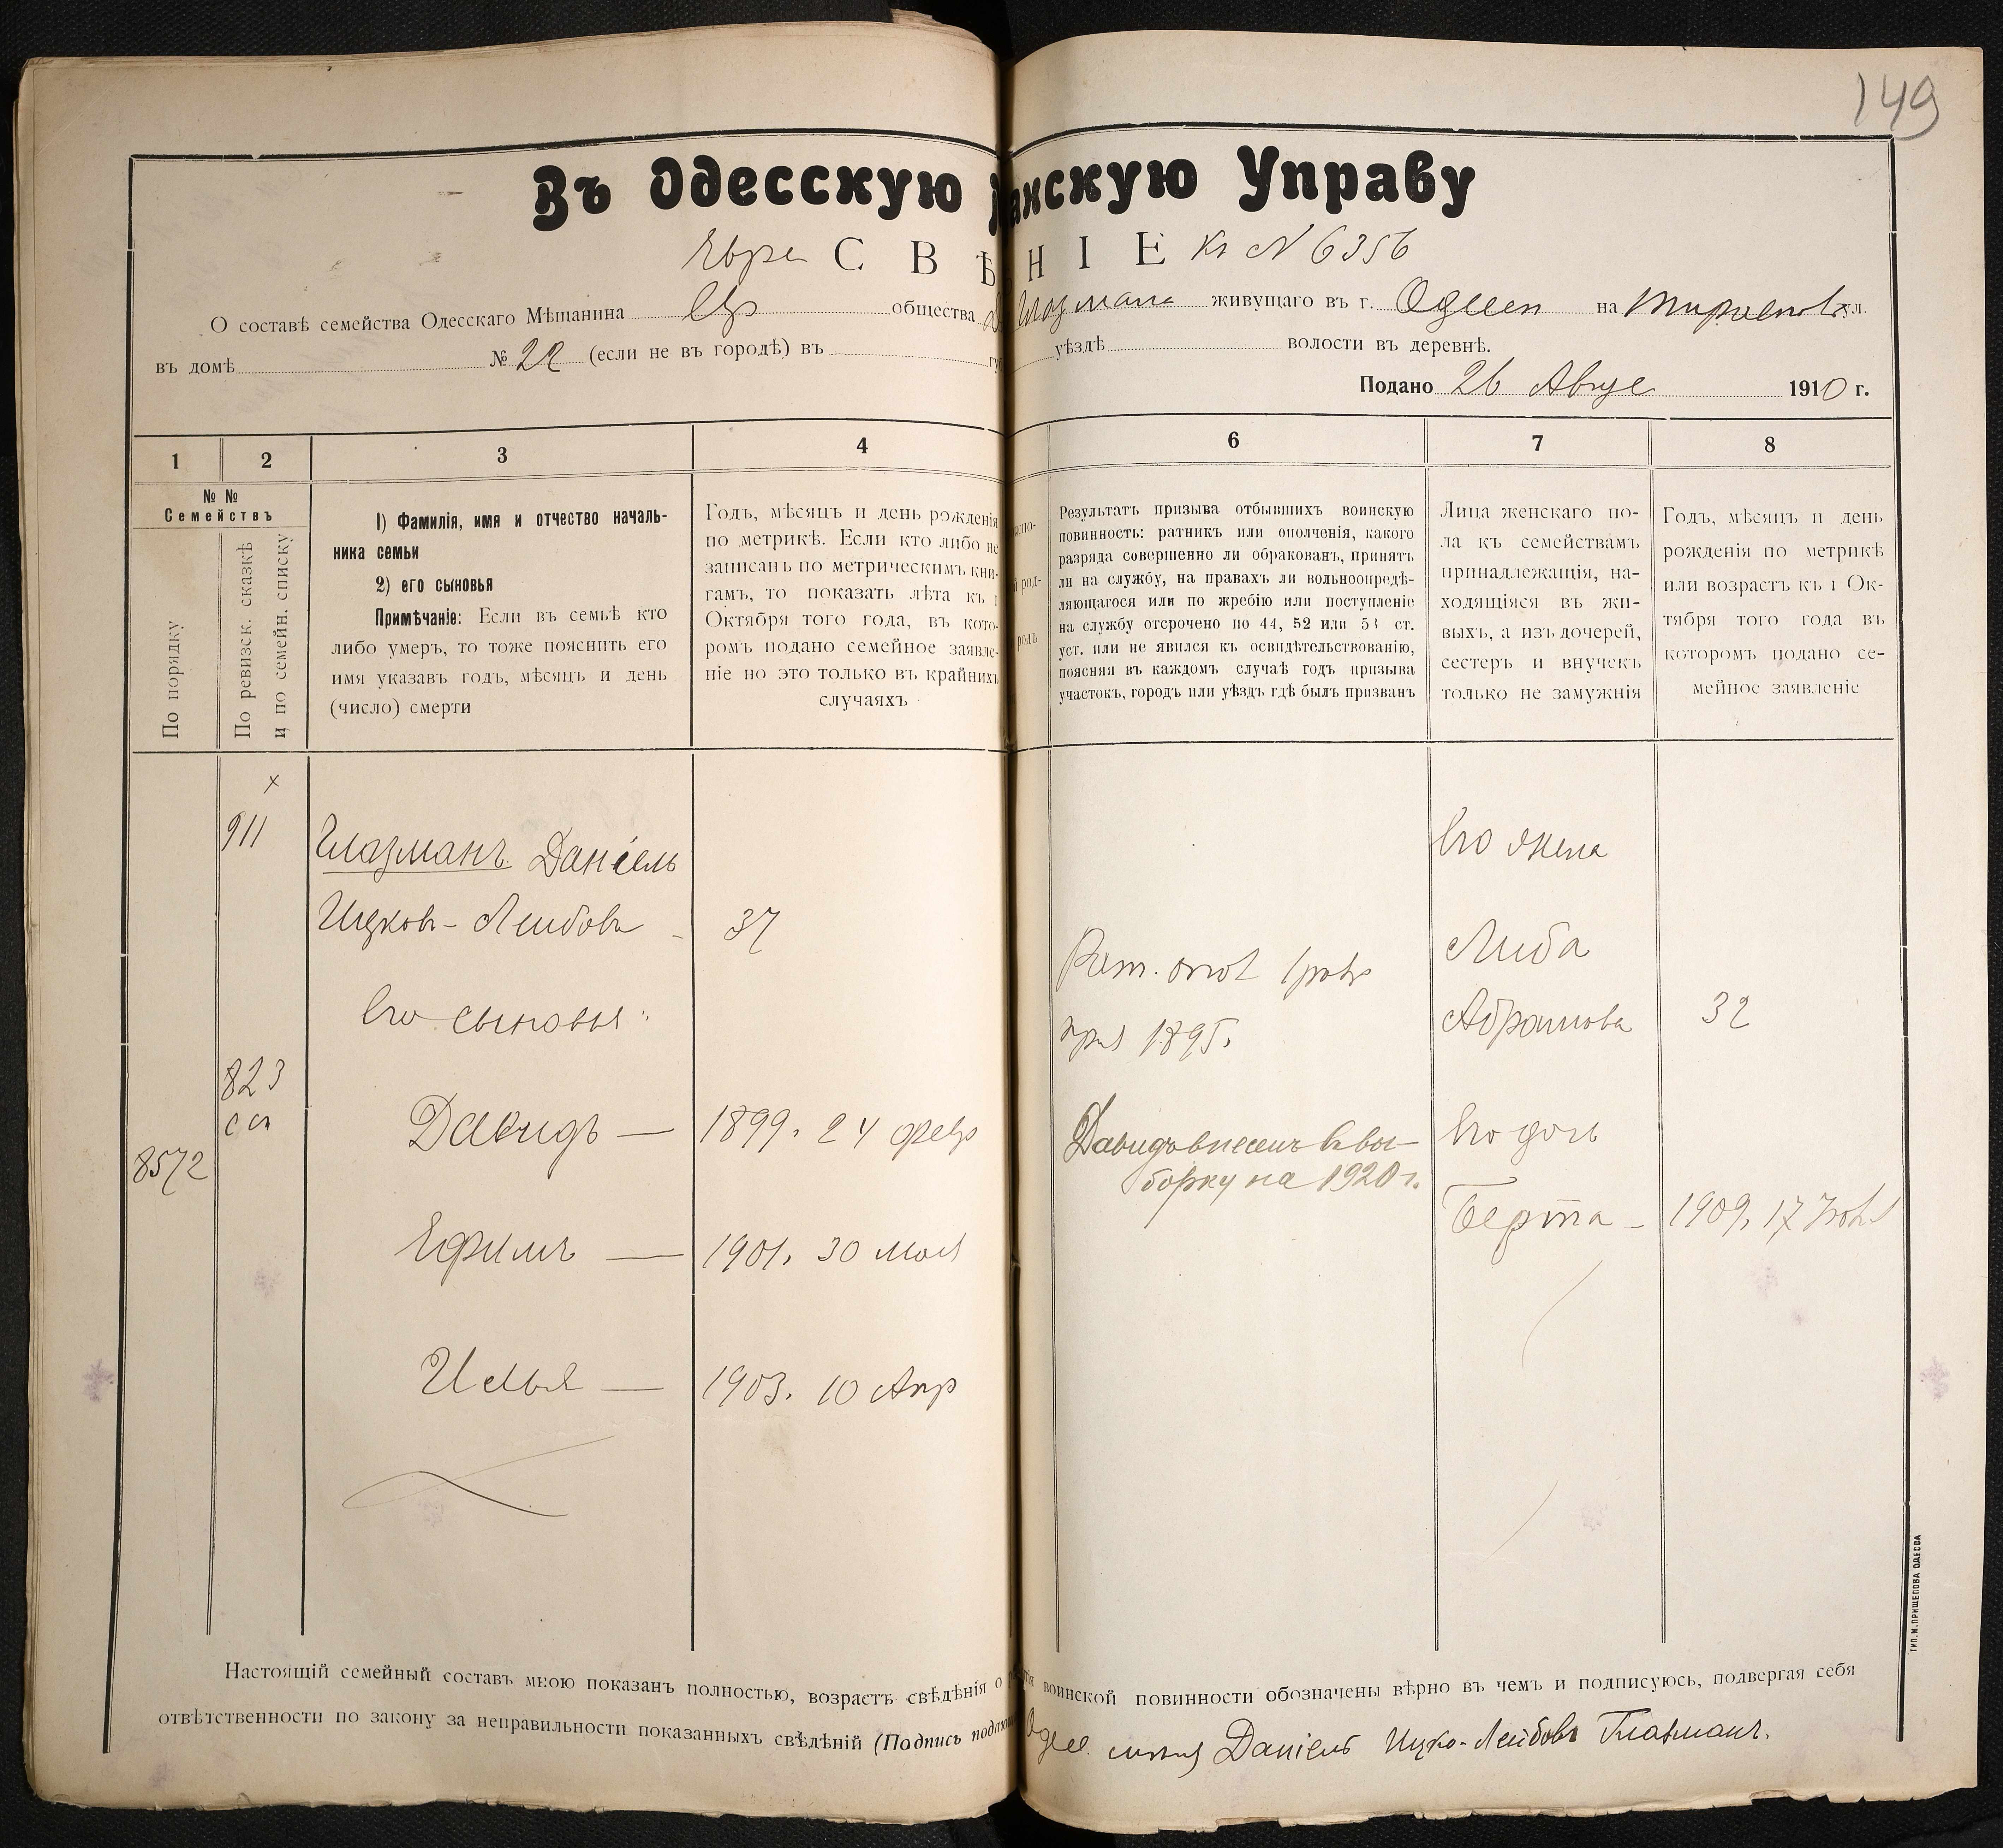 149
Въ Одесскую нскую Управу
Евре СВѢ НІЕ Къ № 6356
О составѣ семейства Одесскаго Мѣщанина Евр общества Глазмана живущаго въ г. Одессѣ на ул.
въ домѣ № 22 (если не въ городѣ) въ уѣздѣ волости въ деревнѣ.
Подано 26 Авгус 1910 г.
1 2 3 4 6 7 8
№ №
Семействъ
По порядку
По ревизск. сказкѣ
и по семейн. списку
1) Фамилія, имя и отчество началь-
ника семьи
2) его сыновья
Примѣчаніе: Если въ семьѣ кто
либо умеръ, то тоже пояснить его
имя указавъ годъ, мѣсяцъ и день
(число) смерти
Годъ, мѣсяцъ и день рожденія
по метрикѣ. Если кто либо не
записанъ по метрическимъ кни-
гамъ, то показать лѣта къ 1
Октября того года, въ кото-
ромъ подано семейное заявле-
ніе но это только въ крайнихъ
случаяхъ
Результатъ призыва отбывшихъ воинскую
повинность: ратникъ или ополченія, какого
разряда совершенно ли обракованъ, принятъ
ли на службу, на правахъ ли вольноопредѣ-
ляющагося или по жребію или поступленіе
на службу отсрочено по 44, 52 или 53 ст.
уст. или не явился къ освидѣтельствованію,
поясняя въ каждомъ случаѣ годъ призыва
участокъ, городъ или уѣздъ гдѣ былъ призванъ
Лица женскаго по-
ла къ семействамъ
принадлежащія, на-
ходящіяся въ жи-
выхъ, а изъ дочерей,
сестеръ и внучекъ
только не замужнія
Годъ, мѣсяцъ и день
рожденія по метрикѣ
или возрастъ къ 1 Ок-
тября того года въ
которомъ подано се-
мейное заявленіе
х
911
Глазманъ Даніель
Ицковъ-Лейбовъ - 37
Его сыновья:
823
сп
8572
Давидъ — 1899. 24 февр
Ефимъ — 1901. 30 мая
Илья — 1903. 10 Апр
Рат. опол 1 разр
приз 1895.
Давидъ внесенъ въ вы-
борку на 1920 г.
Его жена
Либа
Абрамова 32
Его дочь
Берта - 1909. 17
Настоящій семейный составъ мною показанъ полностью, возрастъ свѣдѣнія о воинской повинности обозначены вѣрно въ чемъ и подписуюсь, подвергая себя
отвѣтственности по закону за неправильности показанныхъ свѣдѣній (Подпись Одес. Даніель Ицко-Лейбовъ Глазманъ.
ТИП. М. ПРИЩЕПОВА ОДЕССА